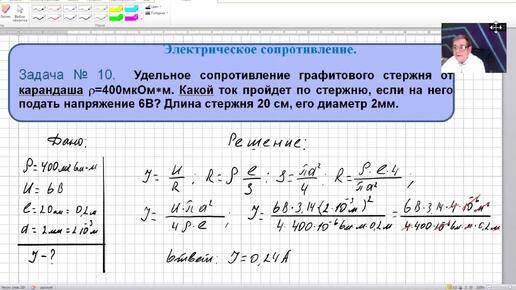 Электрическое сопротивление.
Задача № 10. Удельное сопротивление графитового стержня от
карандаша ρ=400мкОм*м. Какой ток пройдет по стержню, если на него
подать напряжение 6В? Длина стержня 20 см, его диаметр 2мм.
Дано:
ρ = 400 мкОм·м
U = 6В
ℓ = 20см = 0,2м
d = 2мм = 2·10⁻³м
I - ?
Решение:
I = U/R ; R = ρ ℓ/S ; S = πd²/4 ; R = ρ·ℓ·4/πd² ;
I = U·πd²/4·ρ·ℓ ; I = 6В·3,14(2·10⁻³м)²/4·400·10⁻⁶Ом·м·0,2м = 6В·3,14·4·10⁻⁶м²/4·400·10⁻⁶Ом·м·0,2м
Ответ: I = 0,24А